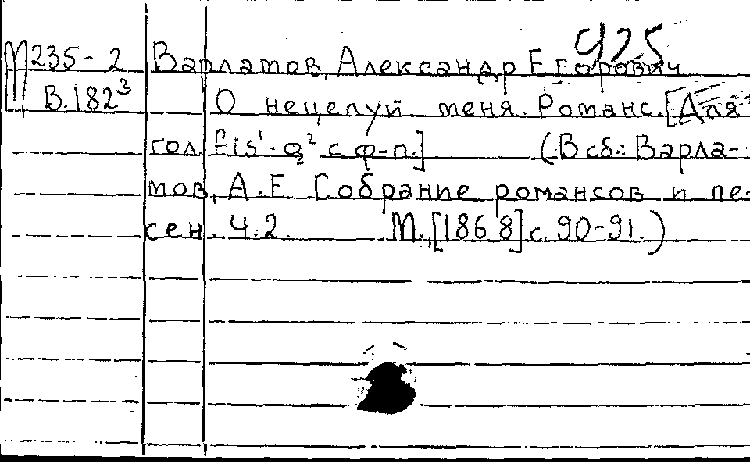 925
М235-2 Варламов, Александр Егорович
В.182³ О нецелуй меня. Романс. [Для
гол. fis¹-g² с ф-п.] (В сб.: Варла-
мов, А.Е. Собрание романсов и пе-
сен. Ч.2. М., [1868] с. 90-91.)